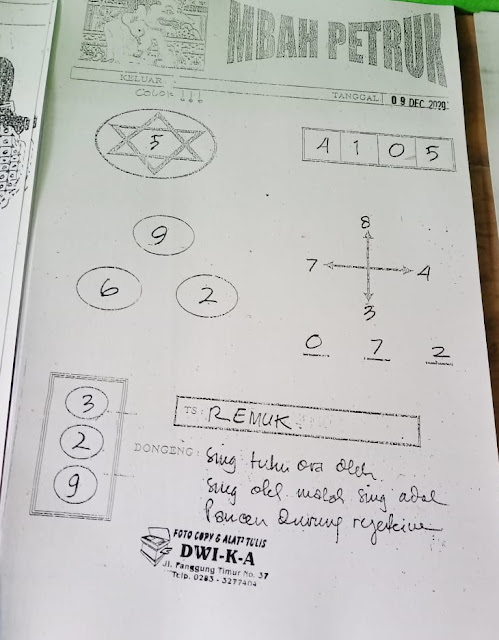 MBAH PETRUK
KELUAR
COLOK !!!
TANGGAL 09 DEC 2020
5
4 1 0 5
9
6 2
8
7 4
3
0 7 2
3
2
9
TS: REMUK
DONGENG: Sing tuku ora oleh
Sing oleh malah sing adol
Pancen durung rejekine
FOTO COPY & ALAT² TULIS
DWI-K-A
Jl. Panggung Timur No. 37
Telp. 0283 - 3277404